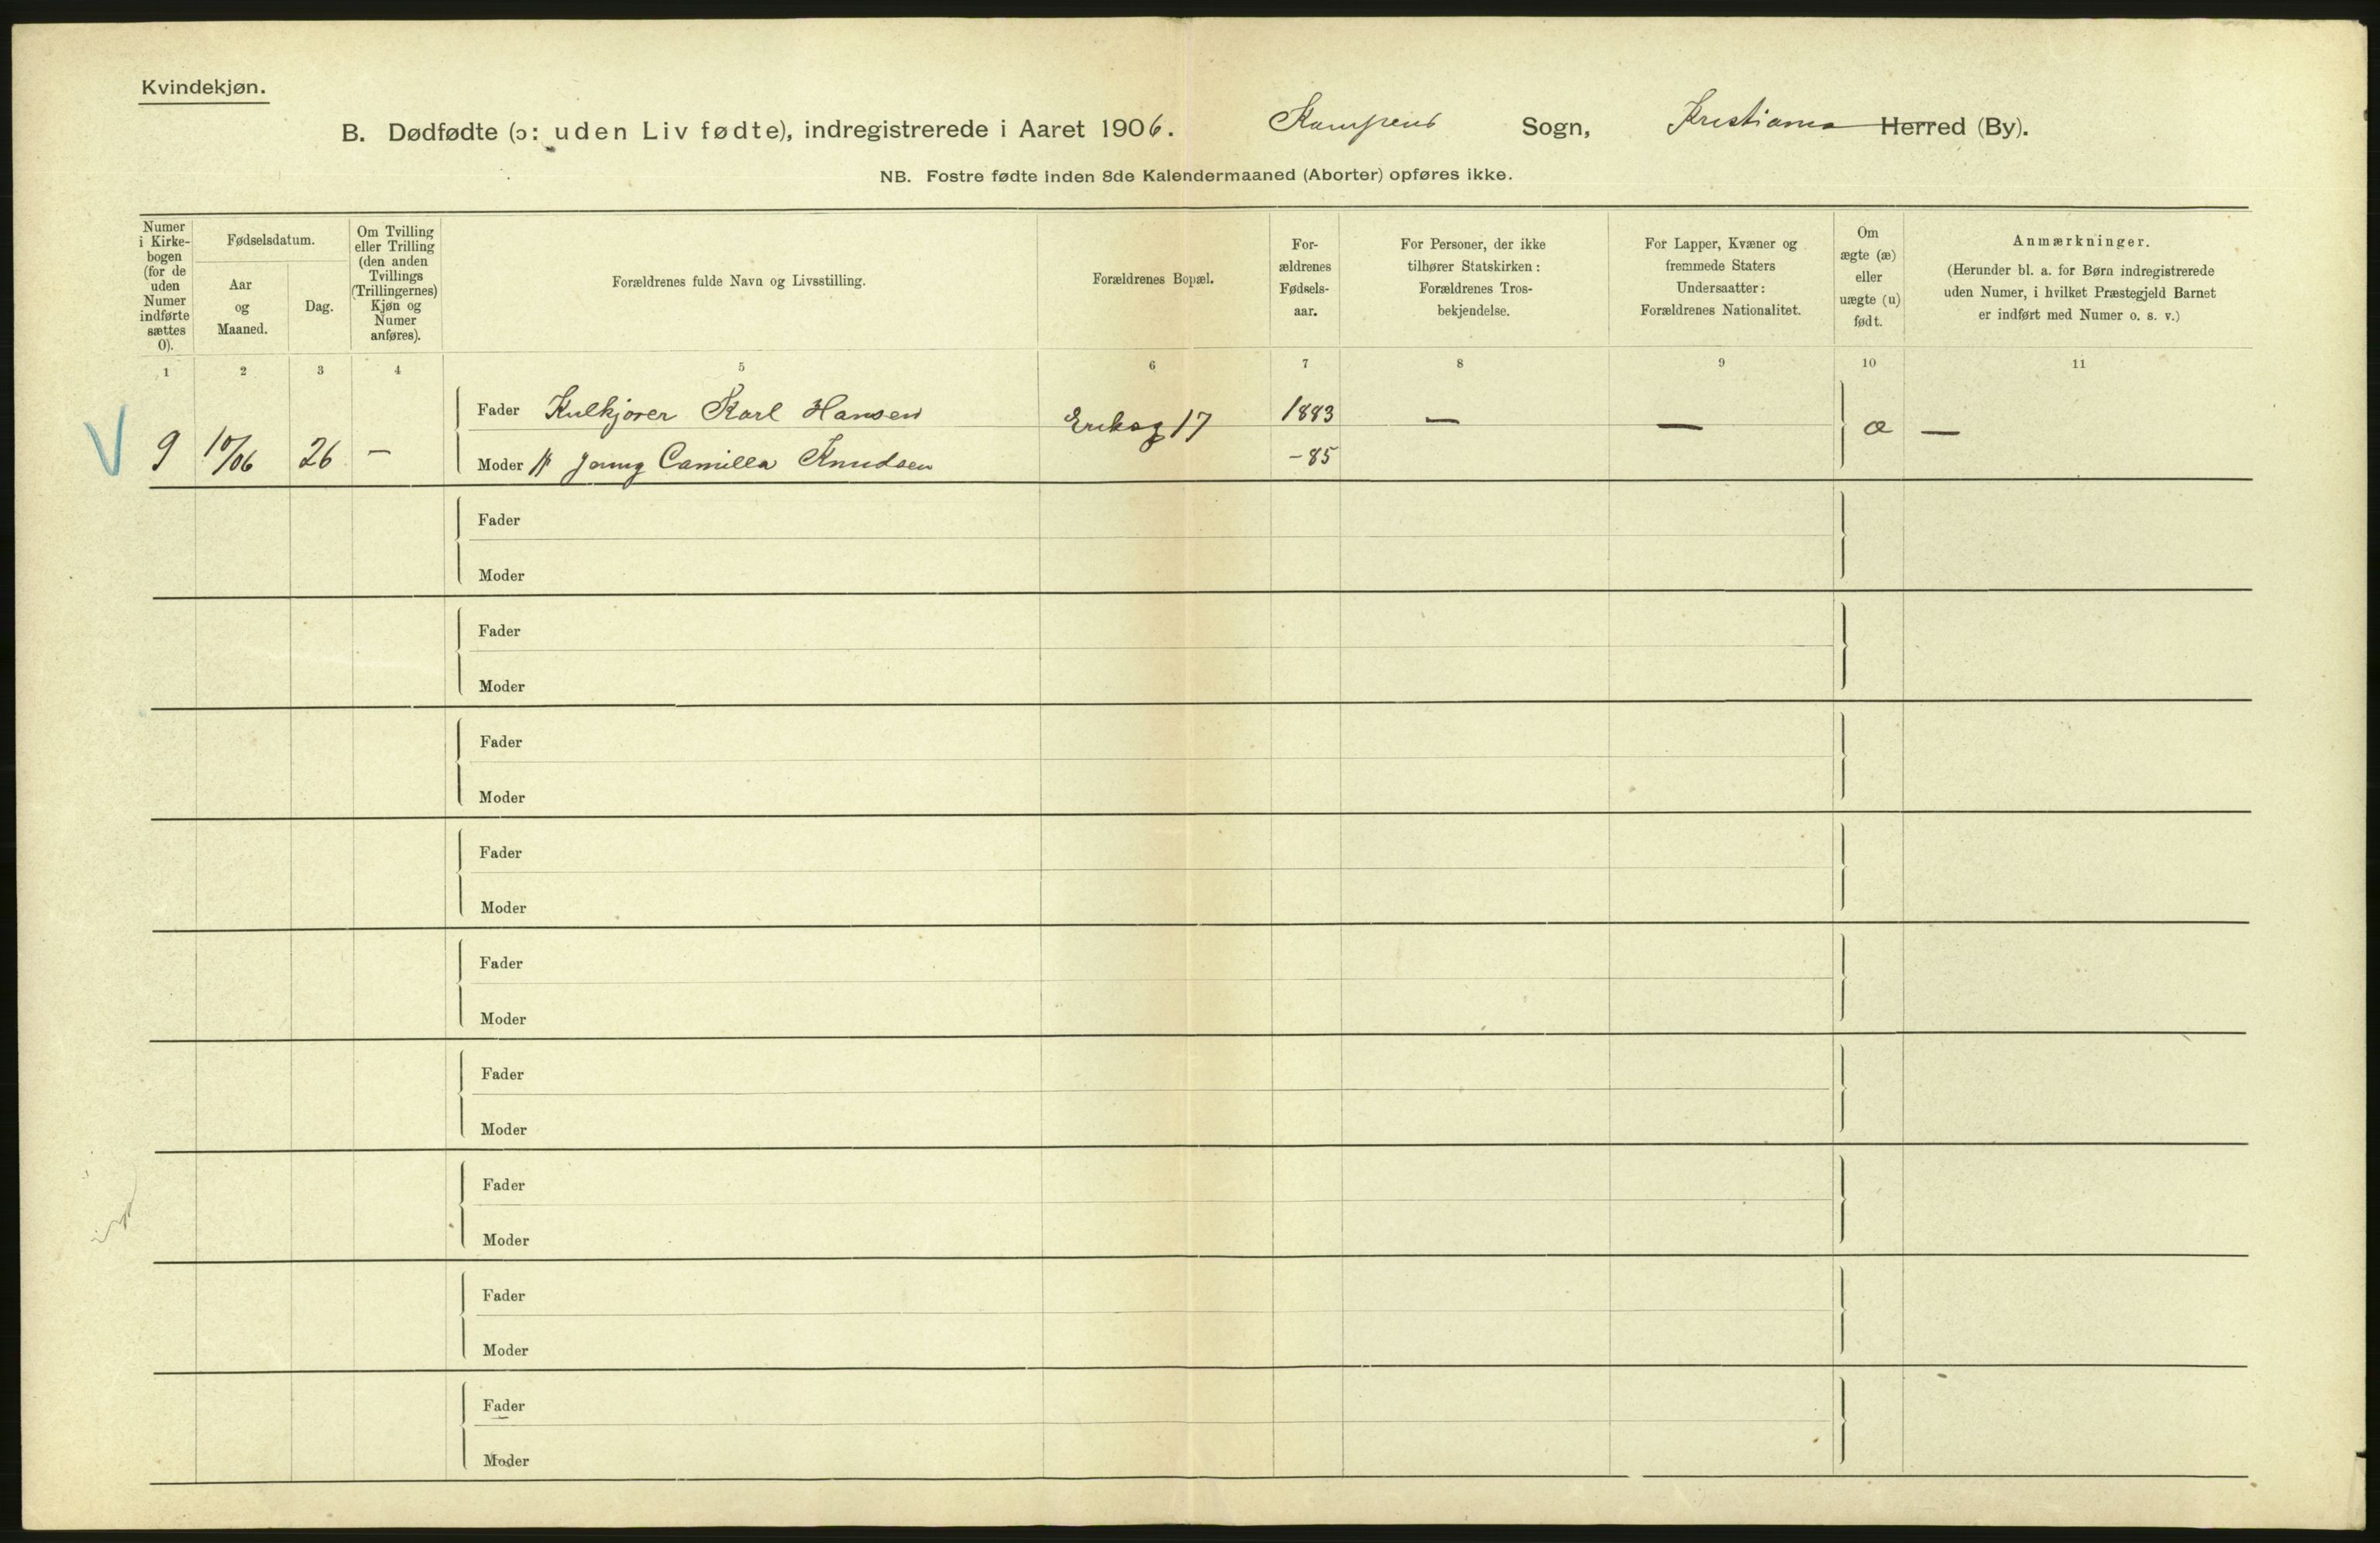 Kvindekjøn.
B. Dødfødte (ɔ: uden Liv fødte), indregistrerede i Aaret 1906. Kampens Sogn, Kristiania Herred (By).
NB. Fostre fødte inden 8de Kalendermaaned (Aborter) opføres ikke.
Numer i Kirkebogen (for de uden Numer indførte sættes 0).
Fødselsdatum.
Aar og Maaned.
Dag.
Om Tvilling eller Trilling (den anden Tvillings (Trillingernes) Kjøn og Numer anføres).
Forældrenes fulde Navn og Livsstilling.
Forældrenes Bopæl.
Forældrenes Fødselsaar.
For Personer, der ikke tilhører Statskirken: Forældrenes Trosbekjendelse.
For Lapper, Kvæner og fremmede Staters Undersaatter: Forældrenes Nationalitet.
Om ægte (æ) eller uægte (u) født.
Anmærkninger.
(Herunder bl. a. for Børn indregistrerede uden Numer, i hvilket Præstegjeld Barnet er indført med Numer o. s. v.)
1 2 3 4 5 6 7 8 9 10 11
V 9 10/06 26 —
Fader Kulkjører Karl Hansen Eriksg 17 1883 — — æ —
Moder Jenny Camilla Knudsen – 85
Fader
Moder
Fader
Moder
Fader
Moder
Fader
Moder
Fader
Moder
Fader
Moder
Fader
Moder
Fader
Moder
Fader
Moder